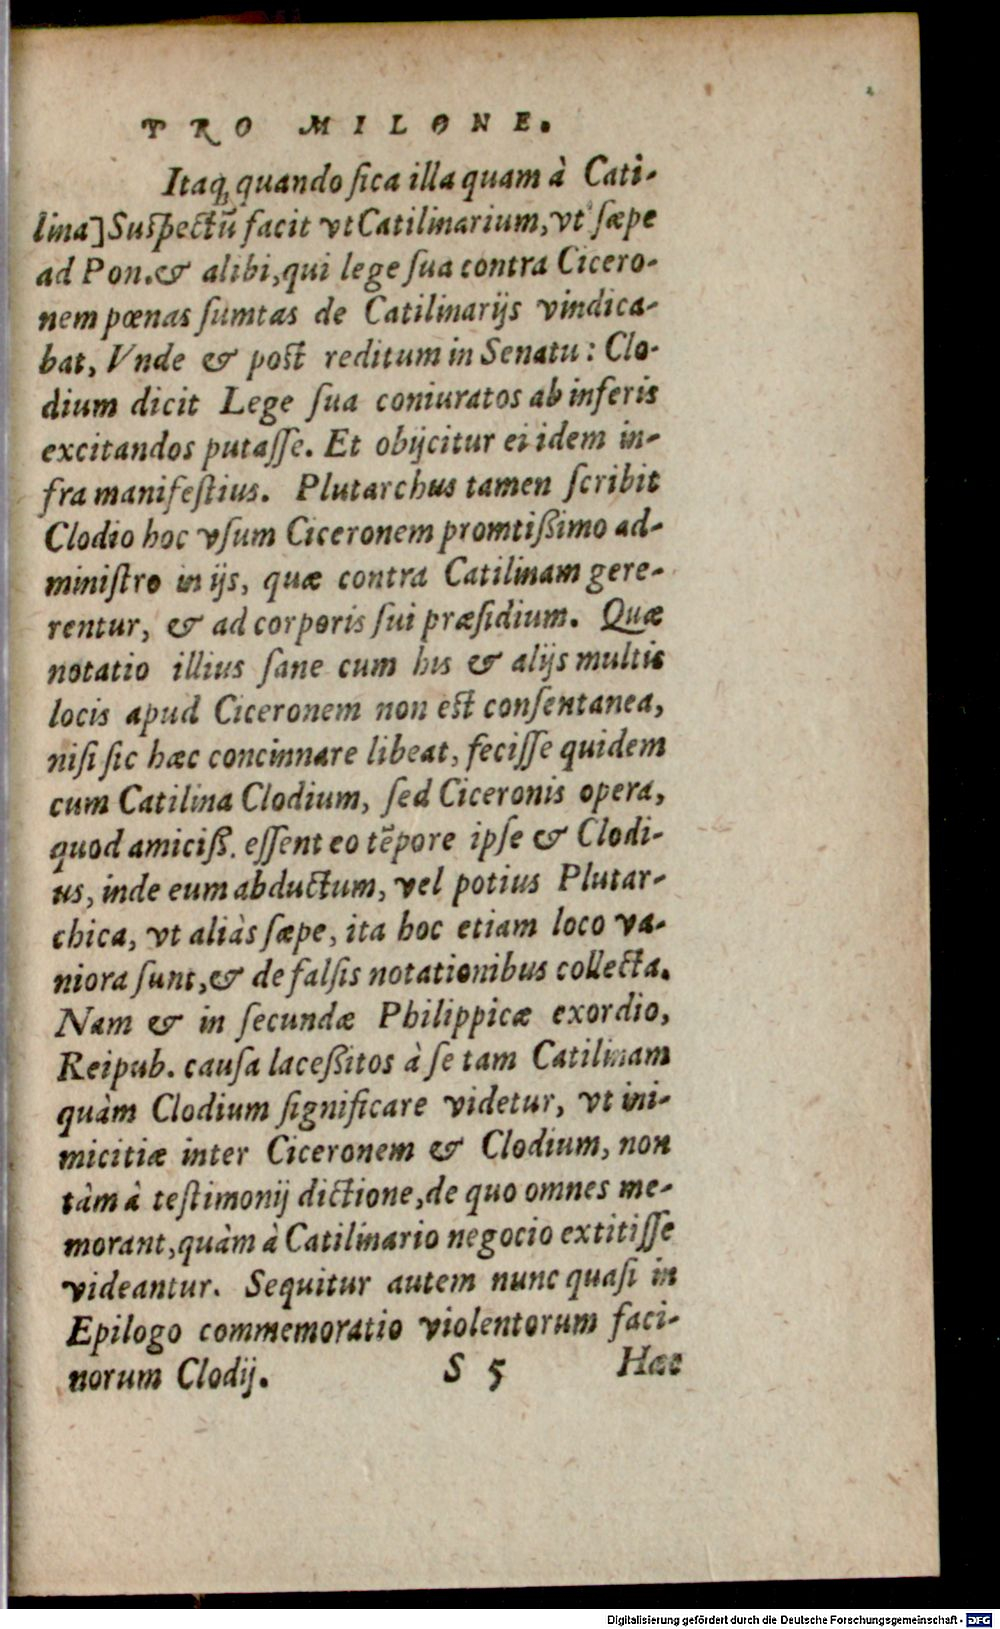 PRO MILONE.
Itaq; quando ſica illa quam à Cati-
lina] Suſpectũ facit vt Catilinarium, vt ſæpe
ad Pon. & alibi, qui lege ſua contra Cicero-
nem pœnas ſumtas de Catilinarijs vindica-
bat, Vnde & poſt reditum in Senatu: Clo-
dium dicit Lege ſua coniuratos ab inferis
excitandos putaſſe. Et obijcitur ei idem in-
fra manifeſtius. Plutarchus tamen ſcribit
Clodio hoc vſum Ciceronem promtißimo ad-
miniſtro in ijs, quæ contra Catilinam gere-
rentur, & ad corporis ſui præſidium. Quæ
notatio illius ſane cum his & alijs multis
locis apud Ciceronem non eſt conſentanea,
niſi ſic hæc concinnare libeat, feciſſe quidem
cum Catilina Clodium, ſed Ciceronis opera,
quod amiciß. eſſent eo tẽpore ipſe & Clodi-
us, inde eum abductum, vel potius Plutar-
chica, vt aliàs ſæpe, ita hoc etiam loco va-
niora ſunt, & de falſis notationibus collecta.
Nam & in ſecundæ Philippicæ exordio,
Reipub. cauſa laceßitos à ſe tam Catilinam
quàm Clodium ſignificare videtur, vt ini-
micitiæ inter Ciceronem & Clodium, non
tàm à teſtimonij dictione, de quo omnes me-
morant, quàm à Catilinario negocio extitiſſe
videantur. Sequitur autem nunc quaſi in
Epilogo commemoratio violentorum faci-
norum Clodij. S 5 Hæc
Digitalisierung gefördert durch die Deutsche Forschungsgemeinschaft - DFG